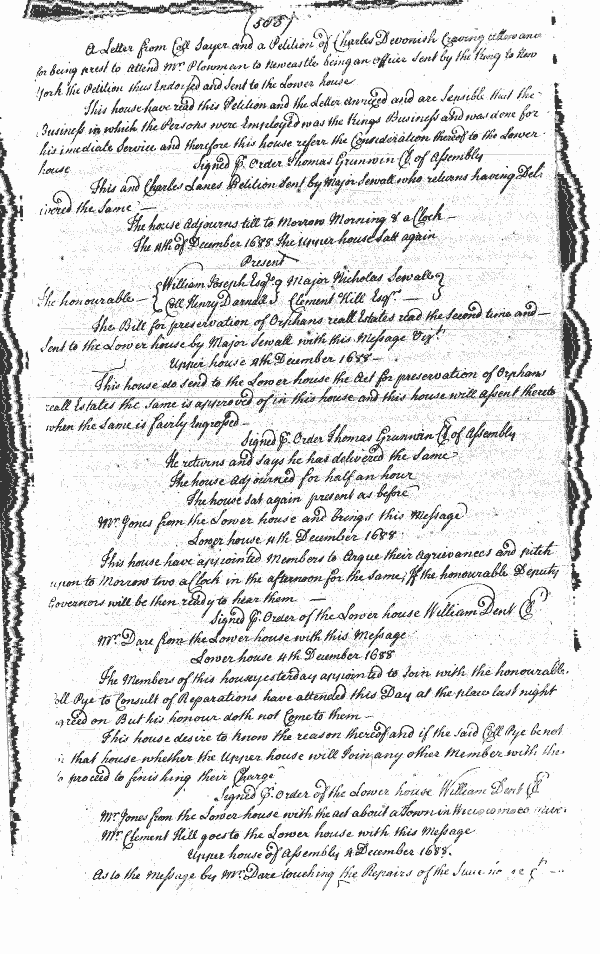 (505)
A Letter from Coll Sayer and a Petition of Charles Devonish Craving allowance
for being prest to attend Mr. Plowman to Newcastle being an officer sent by the King to New
York the Petition thus Endorsed and sent to the Lower house
This house have read this Petition and the Letter annexed and are Sensible that the
Business in which the Persons were Employed was the Kings Business and was done for
his imediate Service and therefore this house referr the Consideration thereof to the Lower
house. Signed p. Order Thomas Grunwin Cl. of Assembly
This and Charles Lanes Petition sent by Major Sewall who returns having Deli
ivered the same —
The house Adjourns till to Morrow Morning 8 a Clock —
The 4th of December 1688 The upper house satt again
Present
William Joseph Esqr. Major Nicholas Sewall
The honourable —
Coll Henry Darnall Clement Hill Esqr. —
The Bill for preservation of Orphans reall Estates read the Second time and —
Sent to the Lower house by Major Sewall with this Message Vizt.
Upper house 4th December 1688 —
This house do send to the Lower house the Act for preservation of Orphans
reall Estates the same is approved of in this house and this house will assent thereto
when the Same is fairly Engrossed —
Signed p. Order Thomas Grunwin Cl. of Assembly
He returns and says he has delivered the same
The house adjourned for half an hour
The house sat again present as before
Mr. Jones from the Lower house and brings this Message
Lower house 4th December 1688
This house have appointed Members to Argue their Agrievances and pitch
upon to Morrow two a Clock in the afternoon for the same, If the honourable Deputy
Governors will be then ready to hear them —
Signed p. Order of the Lower house William Dent Cl.
Mr. Dare from the Lower house with this Message
Lower house 4th December 1688
The Members of this house yesterday appointed to Join with the honourable
oll Pye to Consult of Reparations have attended this Day at the place last night
agreed on But his honour doth not Come to them —
This house desire to know the reason thereof and if the said Coll Pye be not
in that house whether the Upper house will Join any other Member with the
to proceed to finishing their Charge
Signed p. Order of the Lower house William Dent Cl.
Mr. Jones from the Lower house with the act about a Town in Wiccocomoco
Mr. Clement Hill goes to the Lower house with this Message
Upper house of Assembly 4 December 1688.
As to the Message by Mr. Dare touching the Repairs of the